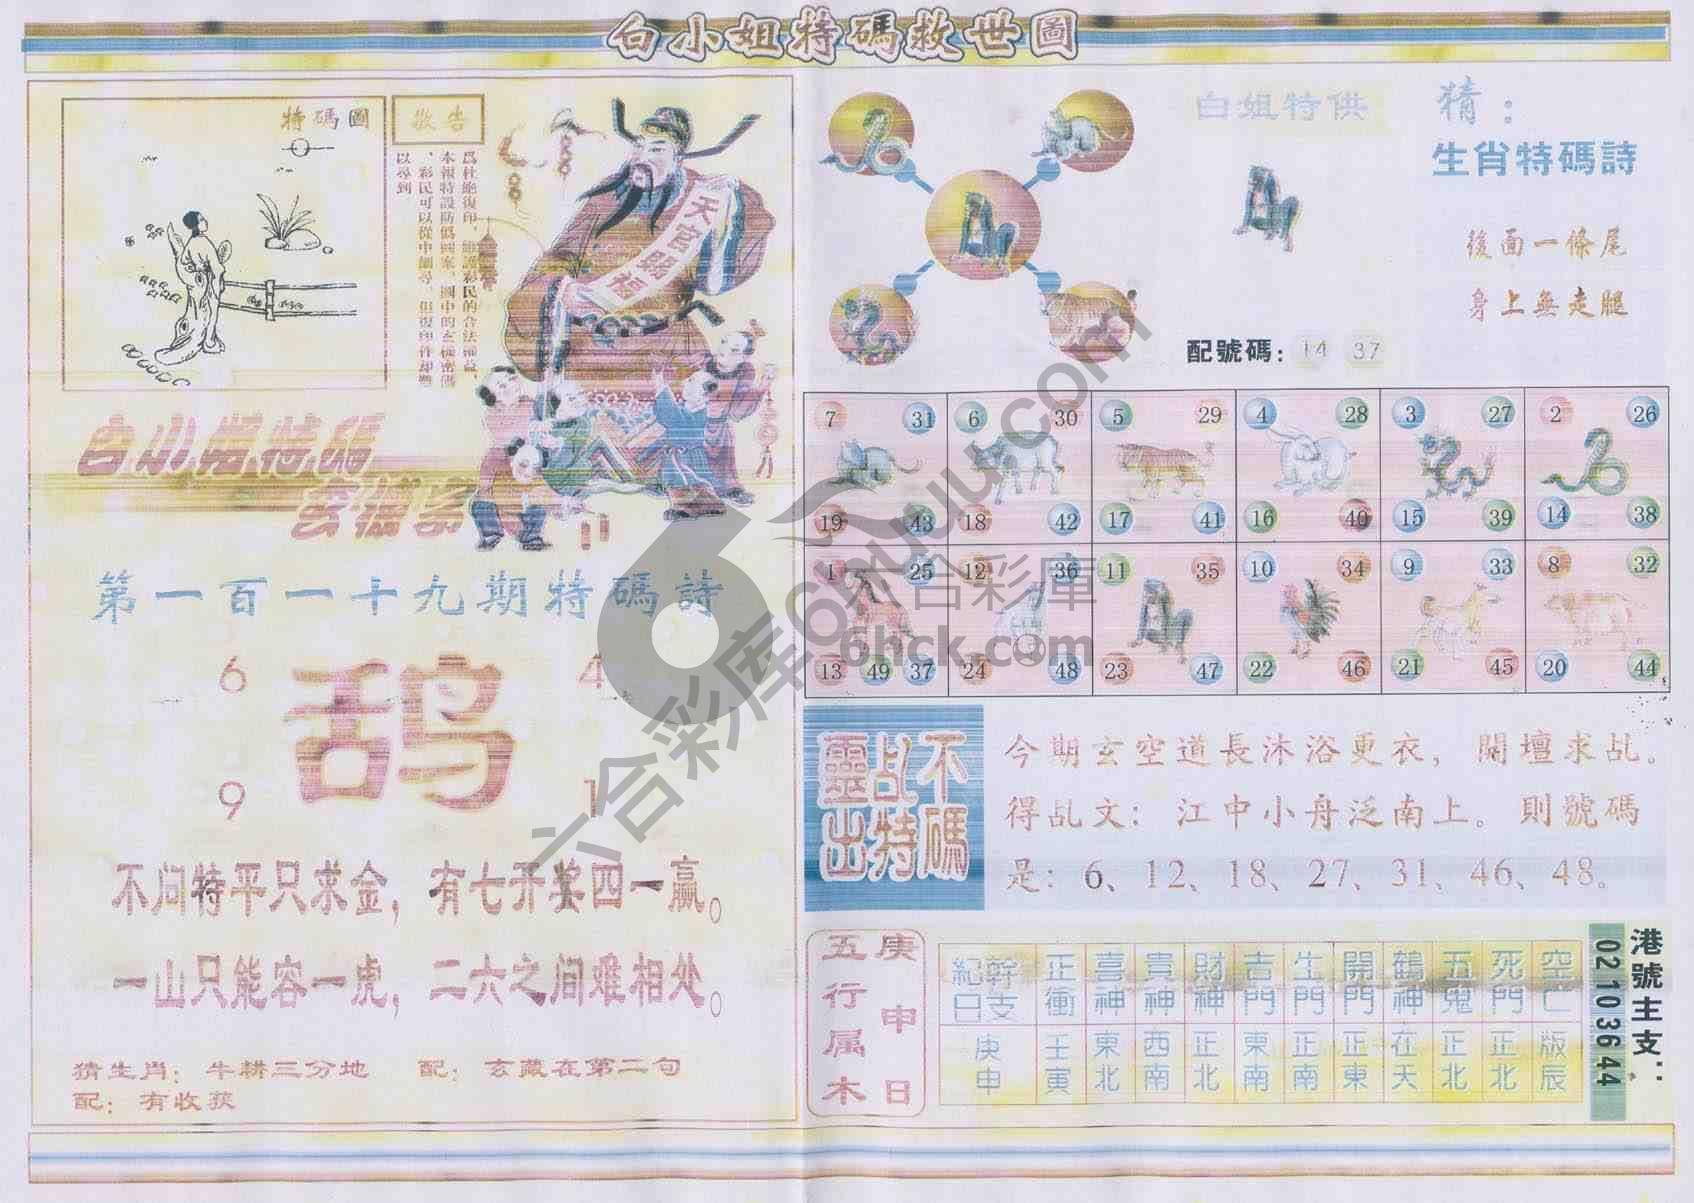 白小姐特碼救世圖
特碼圖
敬告
爲杜絶復印，維護彩民的合法權益，
本報特設防僞圖案，圖中的玄機密碼
，彩民可以從中細尋，但復印件却難
以尋到
天官賜福
白小姐特碼
玄機
第一百一十九期特碼詩
6 4
鸹
9 1
不问特平只求金，有七开奖四一赢。
一山只能容一虎，二六之间难相处。
猜生肖：牛耕三分地 配：玄藏在第二句
配：有收获
白姐特供
猜：
生肖特碼詩
後面一條尾
身上無走腿
配號碼：14 37
7 31 6 30 5 29 4 28 3 27 2 26
19 43 18 42 17 41 16 40 15 39 14 38
1 25 12 36 11 35 10 34 9 33 8 32
13 49 37 24 48 23 47 22 46 21 45 20 44
不碼
乩特
靈出
今期玄空道長沐浴更衣，開壇求乩。
得乩文：江中小舟泛南上。則號碼
是：6、12、18、27、31、46、48。
庚申日
五行属木
紀日幹支 正衝 喜神 貴神 財神 吉門 生門 開門 鶴神 五鬼 死門 空亡
庚申 壬寅 東北 西南 正北 東南 正南 正東 在天 正北 正北 版辰
港號主支：
02103644
六合彩库 6hkuu.com
六合彩庫
6hck.com